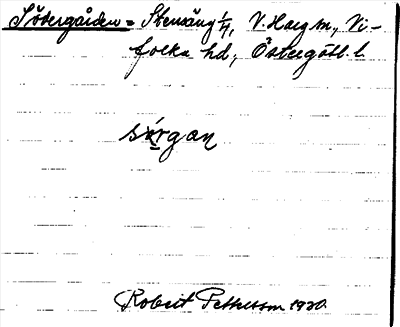 Södergården = Stensäng 1/4, V. Harg sn, Vi-
folka hd, Östergötl. l.
sǿrgan
Robert Pettersson 1930.